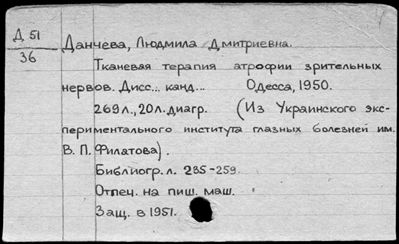 Д 51
36
Данчева, Людмила Дмитриевна.
Тканевая терапия атрофии зрительных
нервов. Дисс... канд... Одесса, 1950.
269 л., 20 л. диагр. (Из Украинского экс-
периментального института глазных болезней им.
В. П. Филатова).
Библиогр. л. 235-259.
Отпеч. на пиш. маш.
Защ. в 1951.